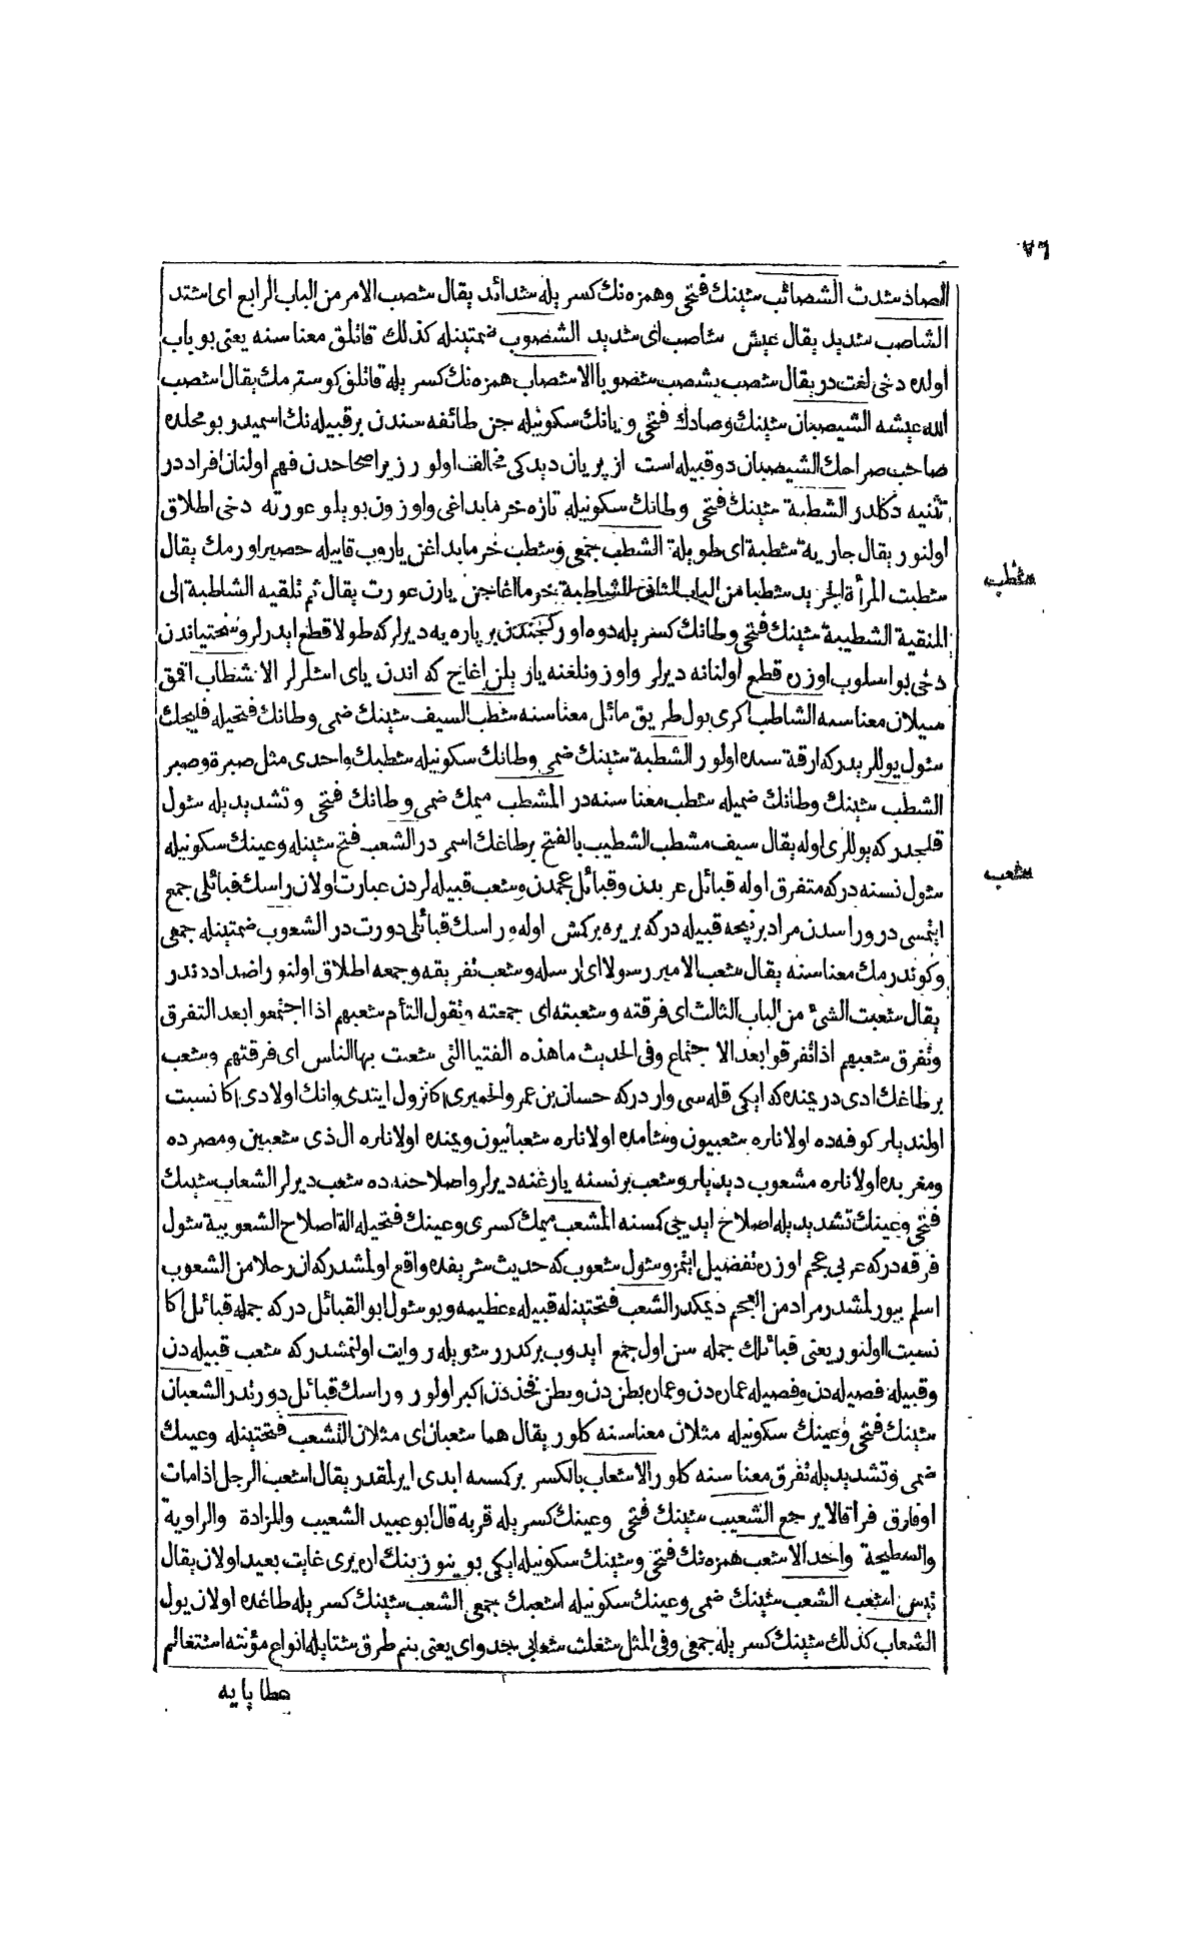 ٧٦
الصاد شدت الشصائب شينك فتحى وهمزه نك كسريله شدائد يقال شصب الامر من الباب الرابع اى اشتد
الشاصب شديد يقال عيش شاصب اى شديد الشصوب ضمتينله كذلك قاتلق معناسنه يعنى بو باب
اوله دخى لغت در يقال شصب يشصب شصوبا الاشصاب همزه نك كسريله قاتلق كوسترمك يقال اشصب
الله عيشه الشيصبان شينك وصادك فتحى و يانك سكونيله جن طائفه سندن بر قبيله نك اسميدر بو محلده
صاحب صراحك الشيصبان دو قبيله است از پريان ديدكى مخالف اولور زيرا صحاحدن فهم اولنان افراد در
تثنيه دكلدر الشطبة شينك فتحى وطانك سكونيله تازه خرما بداغى واوزون بويلو عورته دخى اطلاق
اولنور يقال جارية شطبة اى طويلة الشطب جمعى وشطب خرما بداغن ياروب قابيله حصير اورمك يقال
شطبت المرأة الجريد شطبا من الباب الثانى الشاطبة خرما اغاجن يارن عورت يقال ثم تلقيه الشاطبة الى
المنقية الشطيبة شينك فتحى وطانك كسريله دوه اوركجندن بر پاره يه ديرلر كه طولا قطع ايدرلر وسختياندن
دخى بو اسلوب اوزره قطع اولنانه ديرلر واوزونلغنه ياريلن اغاج كه اندن ياى اشلرلر الانشطاب اقمق
سيلان معناسنه الشاطب اكرى يول طريق مائل معناسنه شطب السيف شينك ضمى وطانك فتحيله قليجك
شول يوللريدر كه ارقه سنده اولور الشطبة شينك ضمى وطانك سكونيله شطبك واحدى مثل صبرة وصبر
الشطب شينك وطانك ضميله شطب معناسنه در المشطب ميمك ضمى وطانك فتحى وتشديديله شول
قلجدر كه يوللرى اوله يقال سيف مشطب الشطيب بالفتح بر طاغك اسمى در الشعب فتح شينله وعينك سكونيله
شول نسنه در كه متفرق اوله قبائل عربدن وقبائل عجمدن وشعب قبيله لردن عبارت اولان راسك قبائلى جمع
ايتمسى در و راسدن مراد بر نيجه قبيله در كه بريره بركمش اوله و راسك قبائلى دورت در الشعوب ضمتينله جمعى
وكوندرمك معناسنه يقال شعب الامير رسولا اى ارسله وشعب تفريقه وجمعه اطلاق اولنور اضداددندر
يقال شعبت الشئ من الباب الثالث اى فرقته وشعبته اى جمعته وتقول التأم شعبهم اذا اجتمعوا بعد التفرق
وتفرق شعبهم اذا تفرقوا بعد الاجتماع وفى الحديث ما هذه الفتيا التى شعبت بها الناس اى فرقتهم وشعب
بر طاغك ادى در يمنده كه ايكى قله سى واردر كه حسان بن عمرو الحميرى اكا نزول ايتدى وانك اولادى اكا نسبت
اولنديلر كوفه ده اولانلره شعبيون وشامده اولانلره شعبانيون ويمنده اولانلره ال ذى شعبين ومصرده
ومغربده اولانلره مشعوب ديديلر وشعب بر نسنه يارغنه ديرلر واصلاحنه ده شعب ديرلر الشعاب شينك
فتحى وعينك تشديديله اصلاح ايديجى كمسنه المشعب ميمك كسرى وعينك فتحيله الة اصلاح الشعوبية شول
فرقه در كه عربى عجم اوزره تفضيل ايتمز وشول شعوب كه حديث شريفده واقع اولمشدر كه ان رجلا من الشعوب
اسلم بيورلمشدر مراد من العجم ديمكدر الشعب فتحتينله قبيلهء عظيمه وبو شول ابو القبائل در كه جمله قبائل اكا
نسبت اولنور يعنى قبائلك جمله سن اول جمع ايدوب بركدر شويله روايت اولنمشدر كه شعب قبيله دن
وقبيله فصيله دن وفصيله عماره دن وعماره بطن دن وبطن فخذ دن اكبر اولور و راسك قبائل دورتدر الشعبان
شينك فتحى وعينك سكونيله مثلان معناسنه كلور يقال هما شعبان اى مثلان التشعب فتحتينله وعينك
ضمى وتشديديله تفرق معناسنه كلور الاشعاب بالكسر بر كمسه ابدى ايرلمقدر يقال اشعب الرجل اذا مات
او فارق فراقا لا يرجع الشعيب شينك فتحى وعينك كسريله قربه قال ابو عبيد الشعيب والمزادة والراوية
والسطيحة واحد الاشعب همزه نك فتحى وشينك سكونيله ايكى بوينوزينك اره يرى غايت بعيد اولان يقال
تيس اشعب الشعب شينك ضمى وعينك سكونيله اشعبك جمعى الشعب شينك كسريله طاغده اولان يول
الشعاب كذلك شينك كسريله جمعى وفى المثل شغلت شعابى جدواى يعنى بنم طرق شتايله انواع مؤنته اشتغالم
عطايايه
شطب
شعب